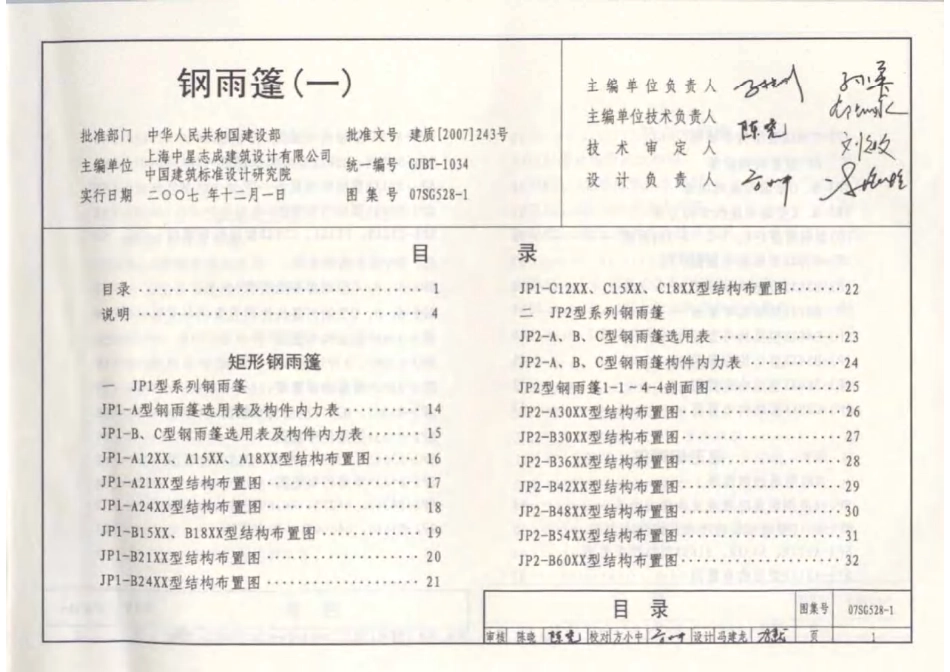 钢雨篷(一)
批准部门 中华人民共和国建设部 批准文号 建质[2007]243号
主编单位 上海中星志成建筑设计有限公司
中国建筑标准设计研究院 统一编号 GJBT-1034
实行日期 二〇〇七年十二月一日 图集号 07SG528-1
主编单位负责人
主编单位技术负责人
技术审定人 陈晓
设计负责人
目 录
目录 1
说明 4
矩形钢雨篷
一 JP1型系列钢雨篷
JP1-A型钢雨篷选用表及构件内力表 14
JP1-B、C型钢雨篷选用表及构件内力表 15
JP1-A12XX、A15XX、A18XX型结构布置图 16
JP1-A21XX型结构布置图 17
JP1-A24XX型结构布置图 18
JP1-B15XX、B18XX型结构布置图 19
JP1-B21XX型结构布置图 20
JP1-B24XX型结构布置图 21
JP1-C12XX、C15XX、C18XX型结构布置图 22
二 JP2型系列钢雨篷
JP2-A、B、C型钢雨篷选用表 23
JP2-A、B、C型钢雨篷构件内力表 24
JP2型钢雨篷1-1~4-4剖面图 25
JP2-A30XX型结构布置图 26
JP2-B30XX型结构布置图 27
JP2-B36XX型结构布置图 28
JP2-B42XX型结构布置图 29
JP2-B48XX型结构布置图 30
JP2-B54XX型结构布置图 31
JP2-B60XX型结构布置图 32
目 录 图集号 07SG528-1
审核 陈晓 陈晓 校对 方小中 设计 冯建光 页 1